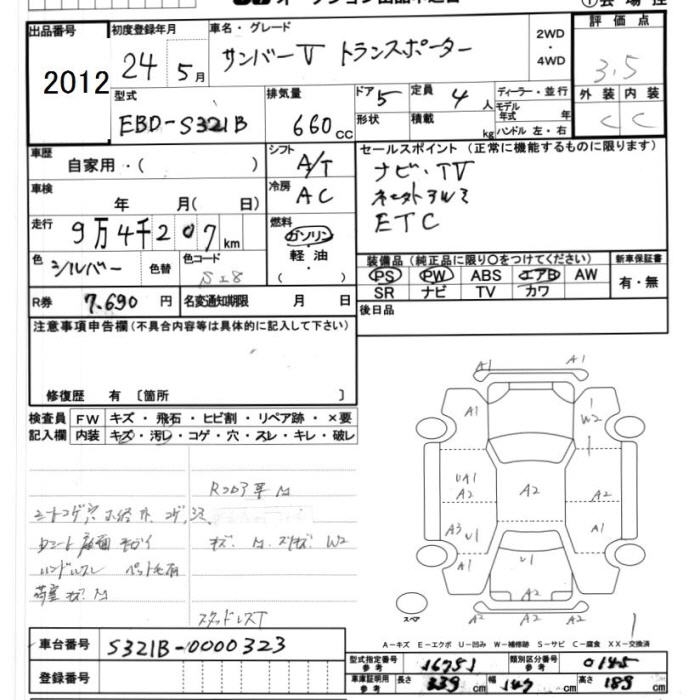 出品番号
2012
初度登録年月
24 5月
車名・グレード
サンバーV トランスポーター
2WD
・
4WD
評価点
3.5
外装 内装
C C
型式
EBD-S321B
排気量
660cc
ドア 5
定員 4人
形状
積載 kg
ディーラー・並行
モデル年式 年
ハンドル 左・右
車歴
自家用・( )
シフト
A/T
車検
年 月( 日)
冷房
AC
走行
9万4千207km
燃料
ガソリン
軽油
・( )
色
シルバー
色替
色コード
S28
R券
7,690円
名変通知期限 月 日
セールスポイント (正常に機能するものに限ります)
ナビ・TV
ETC
装備品(純正品に限り○をつけてください)
PS PW ABS エアB AW
SR ナビ TV カワ
新車保証書
有・無
後日品
注意事項申告欄(不具合内容等は具体的に記入して下さい)
修復歴 有 〔箇所 〕
検査員記入欄
FW キズ・飛石・ヒビ割・リペア跡・×要
内装 キズ・汚レ・コゲ・穴・スレ・キレ・破レ
スタッドレスT
A1 A1
A1 W2
UA1
A2 A2 A2
A3 U1 A1
A2 U1 A2
A2 A2
スペア
A-キズ E-エクボ U-凹み W-補修跡 S-サビ C-腐食 XX-交換済
車台番号
S321B-0000323
登録番号
型式指定番号 参考 16781
類別区分番号 参考 0145
車庫証明用 参考 長さ 339cm 幅 147cm 高さ 189cm